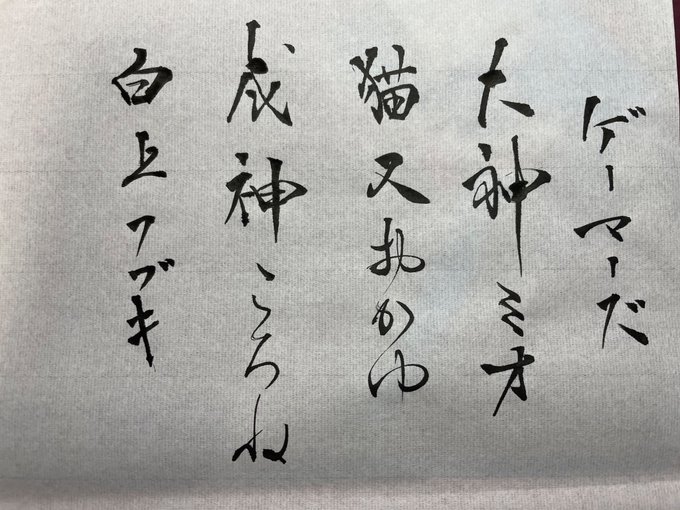 ゲーマーだ
大神ミオ
猫又おかゆ
戌神ころね
白上フブキ